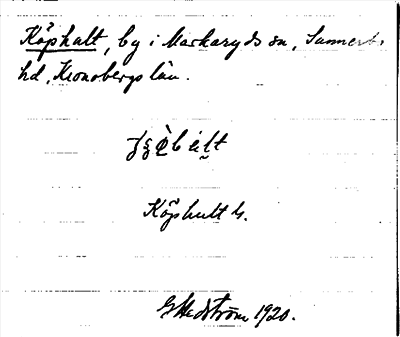 Köphult, by i Markaryds sn, Sunnerbo
hd, Kronobergs län.
Köphult h.
G Hedström 1920.